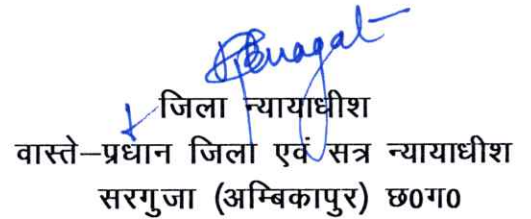 जिला न्यायाधीश
वास्ते–प्रधान जिला एवं सत्र न्यायाधीश
सरगुजा (अम्बिकापुर) छ0ग0